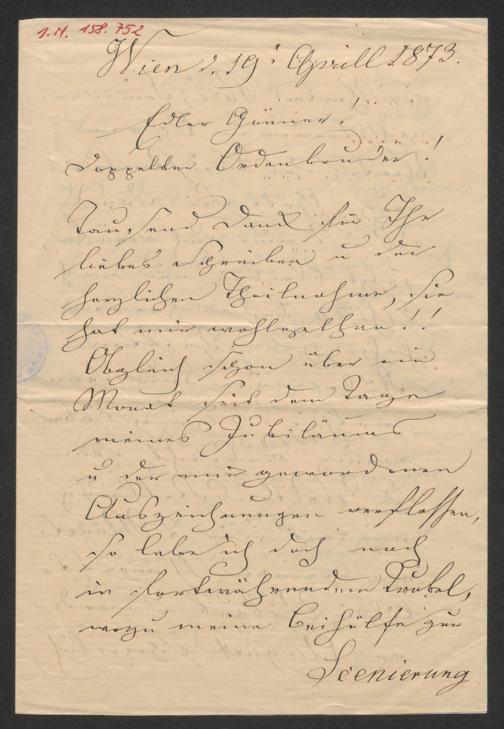 I.N. 158.752
Wien d. 19t April 1873.
Edler Gönner!
Doppelter Ordensbruder!
Tausend Dank für Ihr
liebes Schreiben u die
herzlichen Theilnahme, sie
hat mir wohlgethan!!
Obgleich schon über ein
Monat seit dem Tage
meines Jubiläums
u der mir gewordenen
Auszeichnungen verflossen,
so lebe ich doch noch
in fortwährendem Trubel,
wozu meine Beihülfe zur
Scenierung